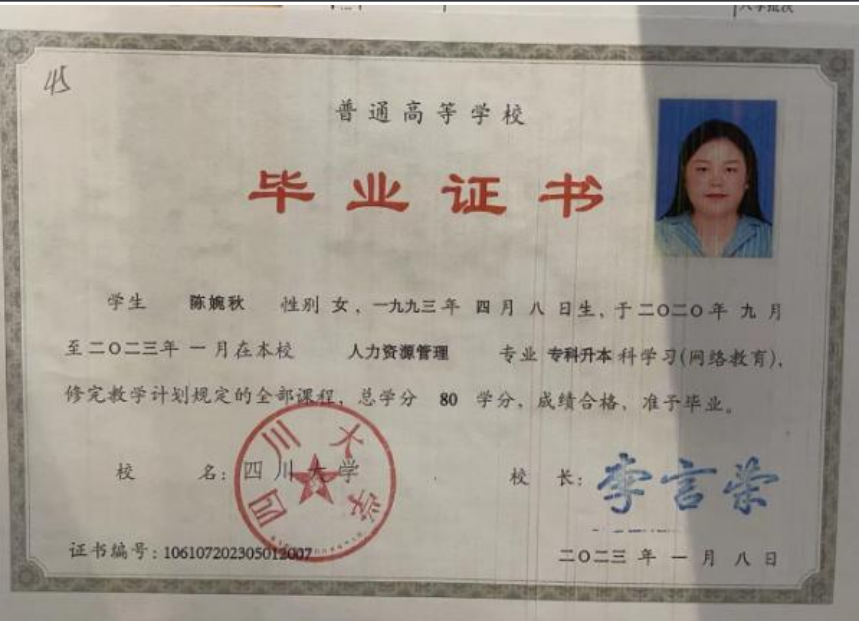 入学批次
45
普通高等学校
毕业证书
学生 陈婉秋 性别 女，一九九三年 四月 八日生，于二〇二〇年 九月
至二〇二三年 一月在本校 人力资源管理 专业 专科升本科学习(网络教育)，
修完教学计划规定的全部课程，总学分 80 学分，成绩合格，准予毕业。
校 名：四川大学 校 长：李言荣
四川大学
证书编号：106107202305012007 二〇二三 年 一 月 八 日